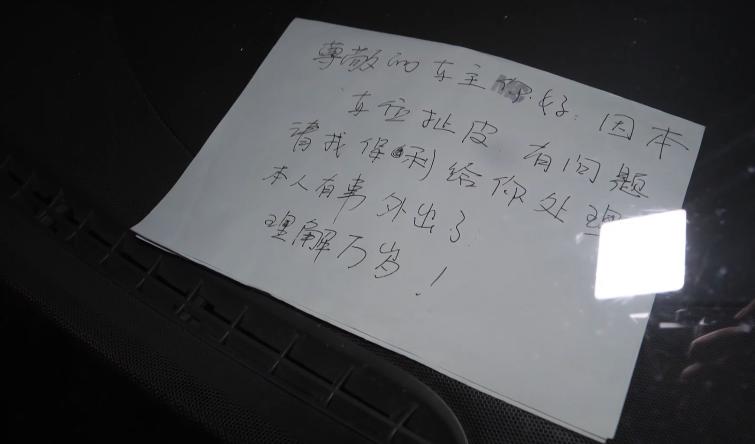 尊敬的车主你好:因本
车位扯皮 有问题
请找保利给你处理
本人有事外出了
理解万岁!